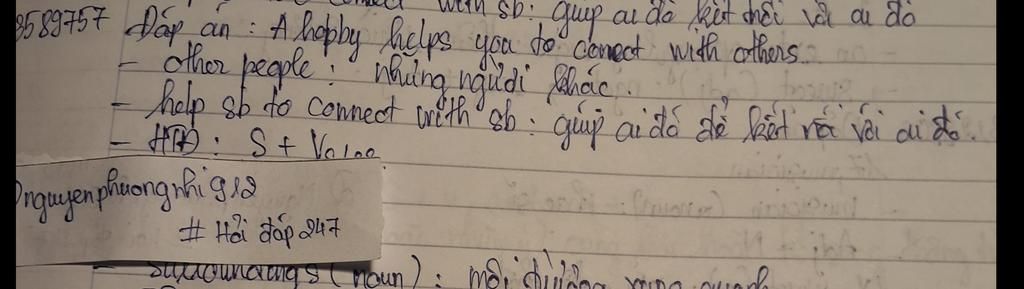 connect with sb: giúp ai đó kết nối với ai đó
3589757 Đáp án: A hobby helps you to conect with others.
- other people: những người khác.
- help sb to connect with sb: giúp ai đó để kết nối với ai đó.
- HTĐ: S +
nguyenphuongnhi912
# Hỏi đáp 247
- surroundings (noun): môi trường xung quanh